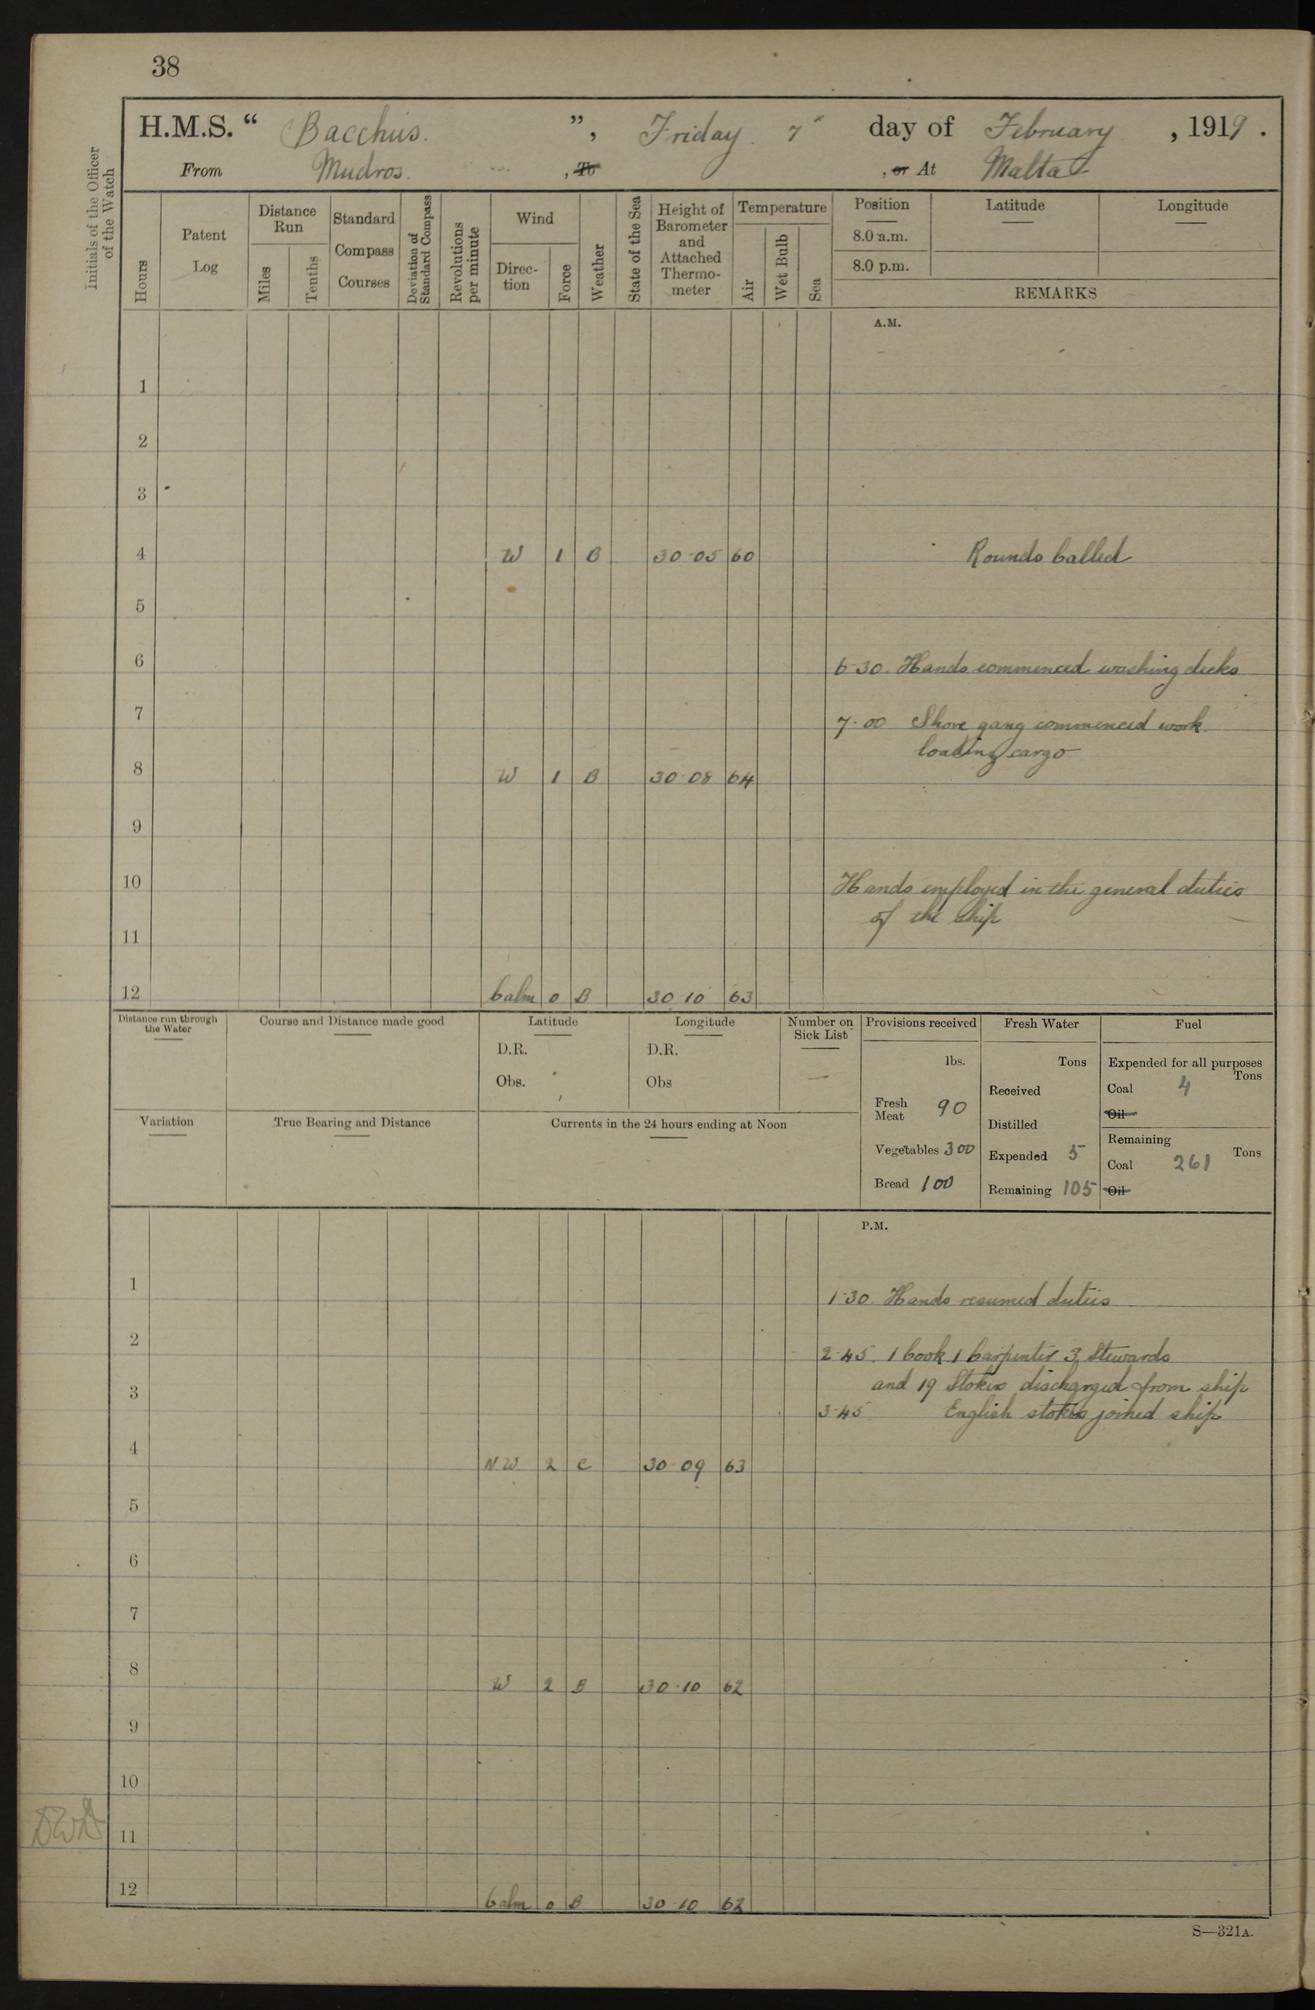 38
H.M.S. " Bacchus. ", Friday 7" day of February, 1919.
From Mudros. , To , or At Malta
Initials of the Officer of the Watch
Hours
Patent Log
Distance Run
Miles
Tenths
Standard Compass Courses
Deviation of Standard Compass
Revolutions per minute
Wind
Direction
Force
Weather
State of the Sea
Height of Barometer and Attached Thermometer
Temperature
Air
Wet Bulb
Sea
Position
8.0 a.m.
8.0 p.m.
Latitude
Longitude
REMARKS
A.M.
1
2
3
4 W 1 B 30·05 60 Rounds Called
5
6 6·30. Hands commenced washing decks
7 7·00 Shore gang commenced work
loading cargo
8 W 1 B 30·08 64
9
10 Hands employed in the general duties
of the ship
11
12 Calm 0 B 30·10 63
Distance run through the Water
Course and Distance made good
Latitude
D.R.
Obs.
Longitude
D.R.
Obs
Number on Sick List
—
Provisions received
lbs.
Fresh Meat 90
Vegetables 300
Bread 100
Fresh Water
Tons
Received
Distilled
Expended 5
Remaining 105
Fuel
Expended for all purposes
Tons
Coal 4
Oil
Remaining
Tons
Coal 261
Oil
Variation
True Bearing and Distance
Currents in the 24 hours ending at Noon
P.M.
1 1·30. Hands resumed duties
2 2·45. 1 Cook 1 Carpenter 3 Stewards
3 and 19 Stokers discharged from ship
3·45 English stokers joined ship
4 NW 2 C 30·09 63
5
6
7
8 W 2 B 30·10 62
9
10
11
12 Calm 0 B 30·10 62
S—321A.